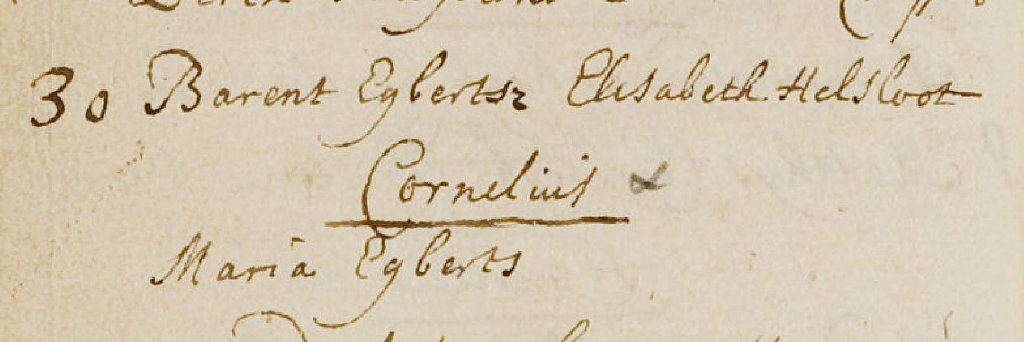 30 Barent Egbertsz Elisabeth Helsloot
Cornelius
Maria Egberts